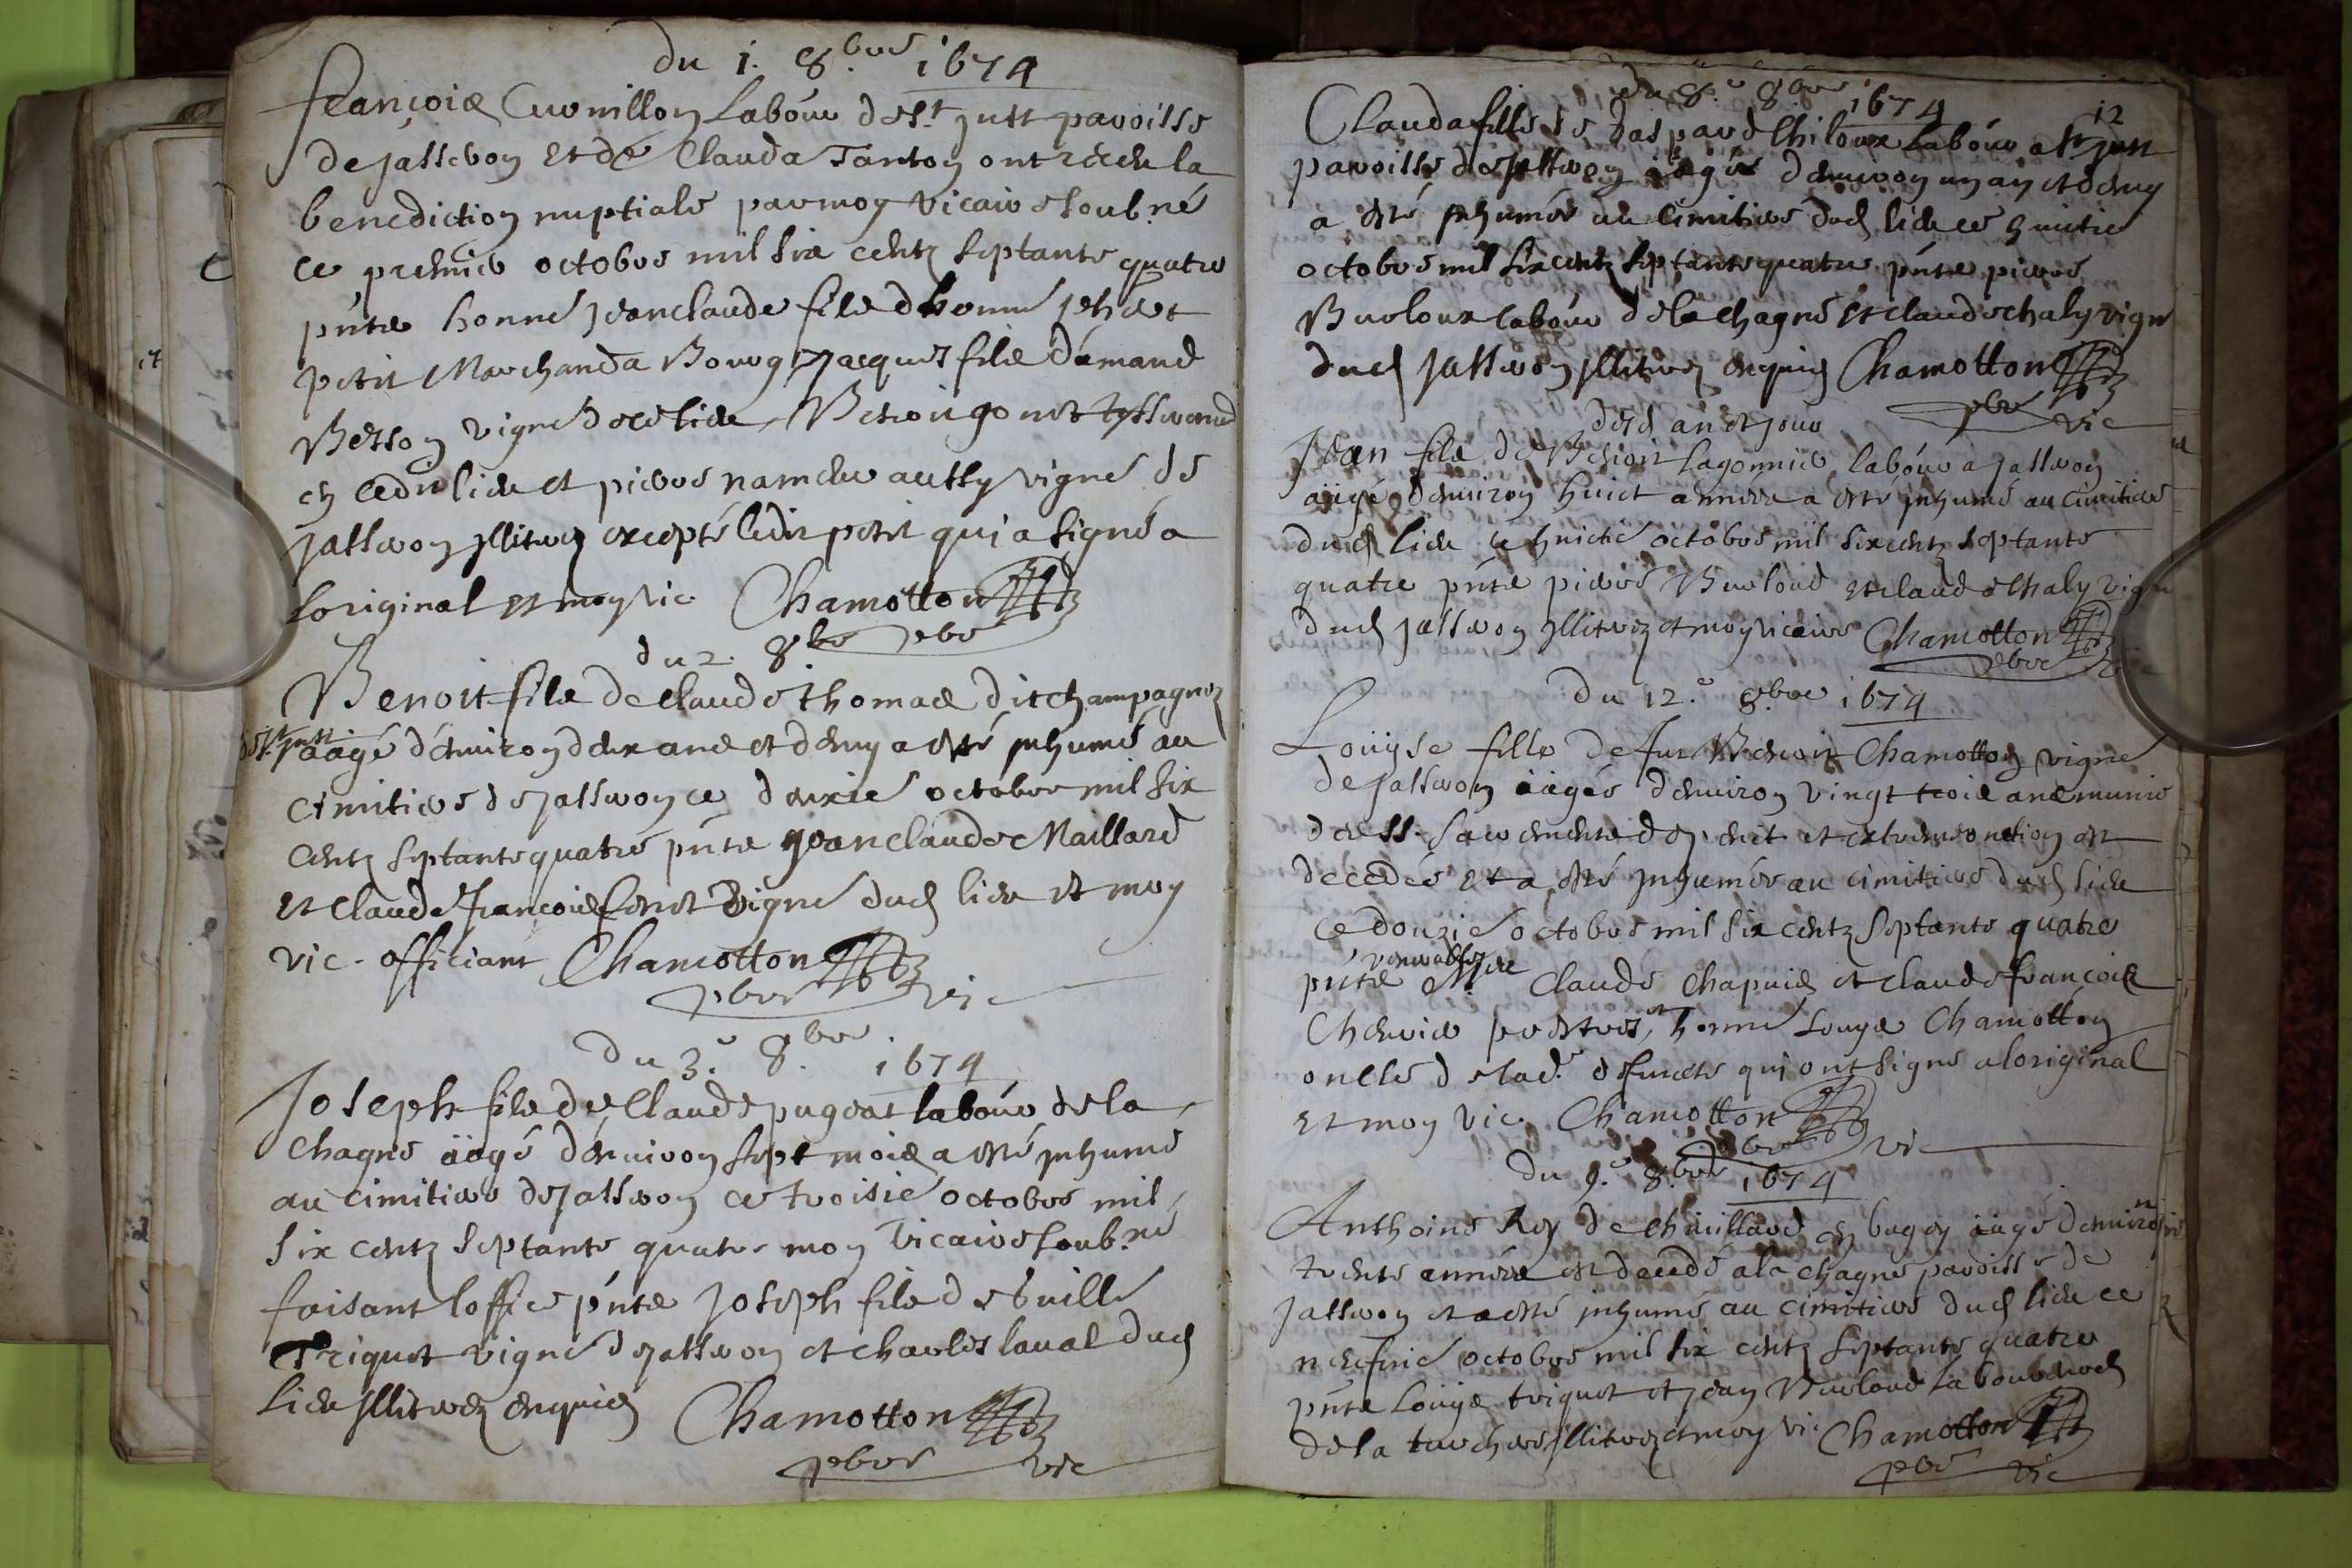 du 1. 8.bre 1674
françois Curnillon labour de St just paroisse
de jasseron et de Clauda Tanton ont receu la
benediction nuptiale par moy vicaire soub.né
ce premier octobre mil six centz septante quatre
pnts honné jean claude fils dhonné
petit Marchand a Bourg jacques filz damand
Besson vigne de ce lieu Benoit
en cedit lieu et pierre aussy vigne de
jasseron illitrez excepté ledit petit qui a signé a
loriginal et moy vic Chamotton
pbre
du 2. 8.bre
Benoit filz de claude thomas dit champagnoz
de St just
aagé denuiron deux ans et demy a esté inhumé au
cimitiere de jasseron ce deuxié octobre mil six
centz septante quatre pnts jean claude Maillard
et claude francois vigne dud lieu et moy
vic. officiant Chamotton
pbre vic
du 3.e 8.bre 1674
Joseph filz de Claude pugeat labour de la
chagne aagé denuiron sept mois a esté inhumé
au cimitiere de jasseron ce troisié octobre mil
six centz septante quatre moy vicaire soub.né
faisant loffice pnts Joseph filz de
Triquet vigne de jasseron et charles laual dud
lieu illitrez enquis Chamotton
pbre vic
du 8.e 8.bre 1674
12
Clauda fille de gaspard labour a St just
paroisse de jasseron aagée denuiron un an et demy
a esté inhumée au cimitiere dud lieu ce huictié
octobre mil six centz septante quatre pnts pierre
Burloux labour de la chagne et claude chaly vigne
dud jasseron illitrez enquis Chamotton
pbre vic
desd an et jour
Jean filz de Benoit lagonnier labour a jasseron
aagé denuiron huict années a esté inhumé au cimitiere
dud lieu ce huictié octobre mil six centz septante
quatre pnts pierre Burloud et claude chaly vigne
dud jasseron illitrez et moy vicaire Chamotton
pbre
du 12.e 8.bre 1674
Loüyse fille de fut Benoit Chamotton vigne
de jasseron aagée denuiron vingt trois ans munie
des SS. sacrements de et extreme onction est
decedée et a esté inhumée au cimitiere dud lieu
ce douzié octobre mil six centz septante quatre
venerables
pnts Mre Claude Chapuis et claude françois
Cheurier prestres, et honné Louys Chamotton
oncle de lad.e defuncte qui ont signe a loriginal
et moy vic. Chamotton
pbre vic
du 9.e 8.bre 1674
Anthoine Rey de chiuillard en bugey aagé denuiron
trente années est decedé a la chagne paroisse de
jasseron et a esté inhumé au cimitiere dud lieu ce
neufuié octobre mil six centz septante quatre
pnts Loüys triquet et jean Burloud laboureurs
de la illitrez et moy vic Chamotton
pbre vic